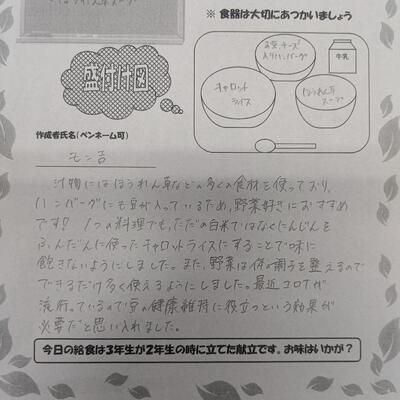 ※ 食器は大切にあつかいましょう
お豆、チーズ
入りハンバーグ
牛乳
キャロット
ライス
ほうれん草
スープ
盛付け図
作成者氏名(ペンネーム可)
モン吉
汁物にはほうれん草などの多くの食材を使っており、
ハンバーグにも豆が入っているため、野菜好きにおすすめ
です! 1つの料理でも、ただの白米ではなくにんじんを
ふんだんに使ったキャロットライスにすることで味に
飽きないようにしました。また、野菜は体の調子を整えるので
できるだけ多く使えるようにしました。最近コロナが
流行っているので豆の健康維持に役立つという効果が
必要だと思い入れました。
今日の給食は3年生が2年生の時に立てた献立です。お味はいかが?